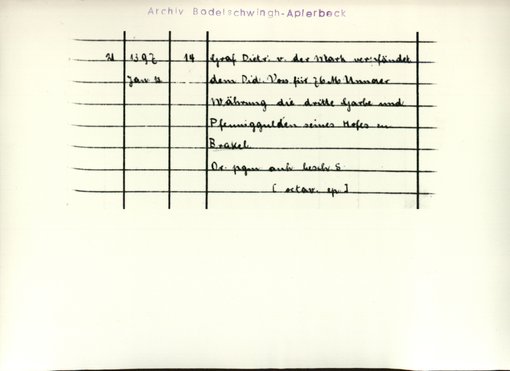 Archiv Bodelschwingh-Aplerbeck
21 1397 14 Graf Dietr. v. der Mark verpfändet
Jan 2 dem Did. Voss für 76 M Unnaer
Währung die dritte Garbe und
Pfenniggulden seines Hofes in
Brakel
Or. pgm anh besch S
[ octav. ep ]